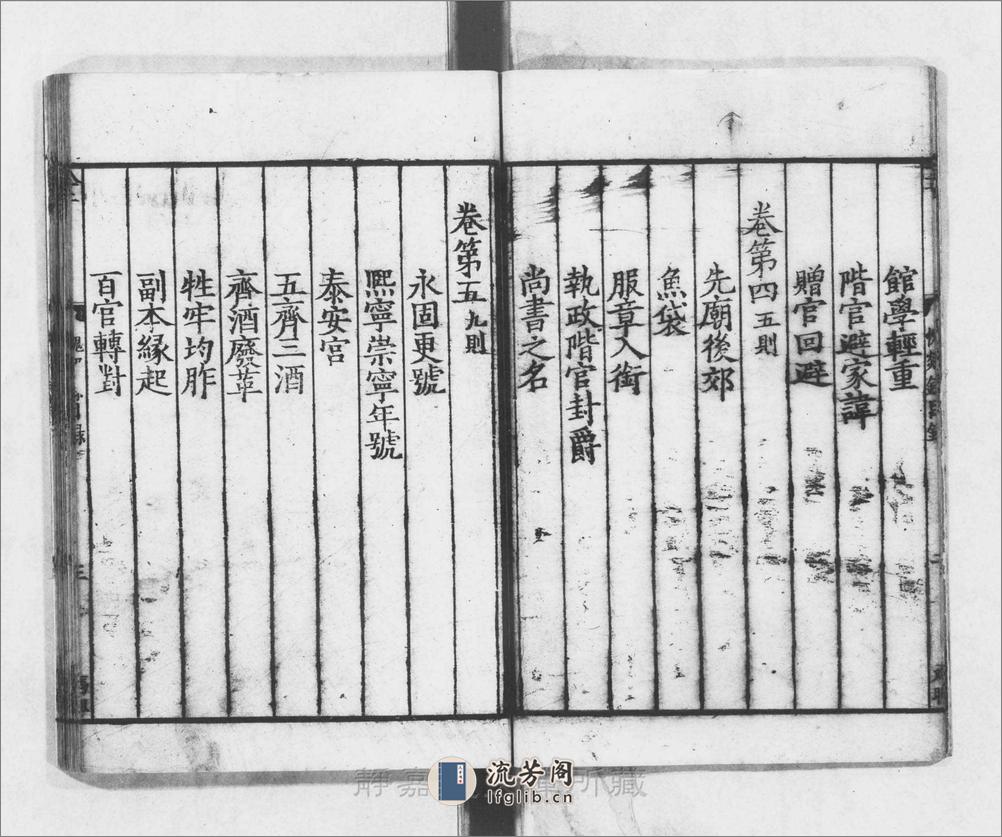 館學輕重
階官避家諱
贈官回避
卷第四 五則
先廟後郊
魚袋
服章入銜
執政階官封爵
尚書之名
卷第五 九則
永固更號
熈寧崇寧年號
泰安宮
五齊三酒
齊酒廢革
牲牢均胙
副本緣起
百官轉對
靜嘉
所藏
流芳阁
lfglib.cn